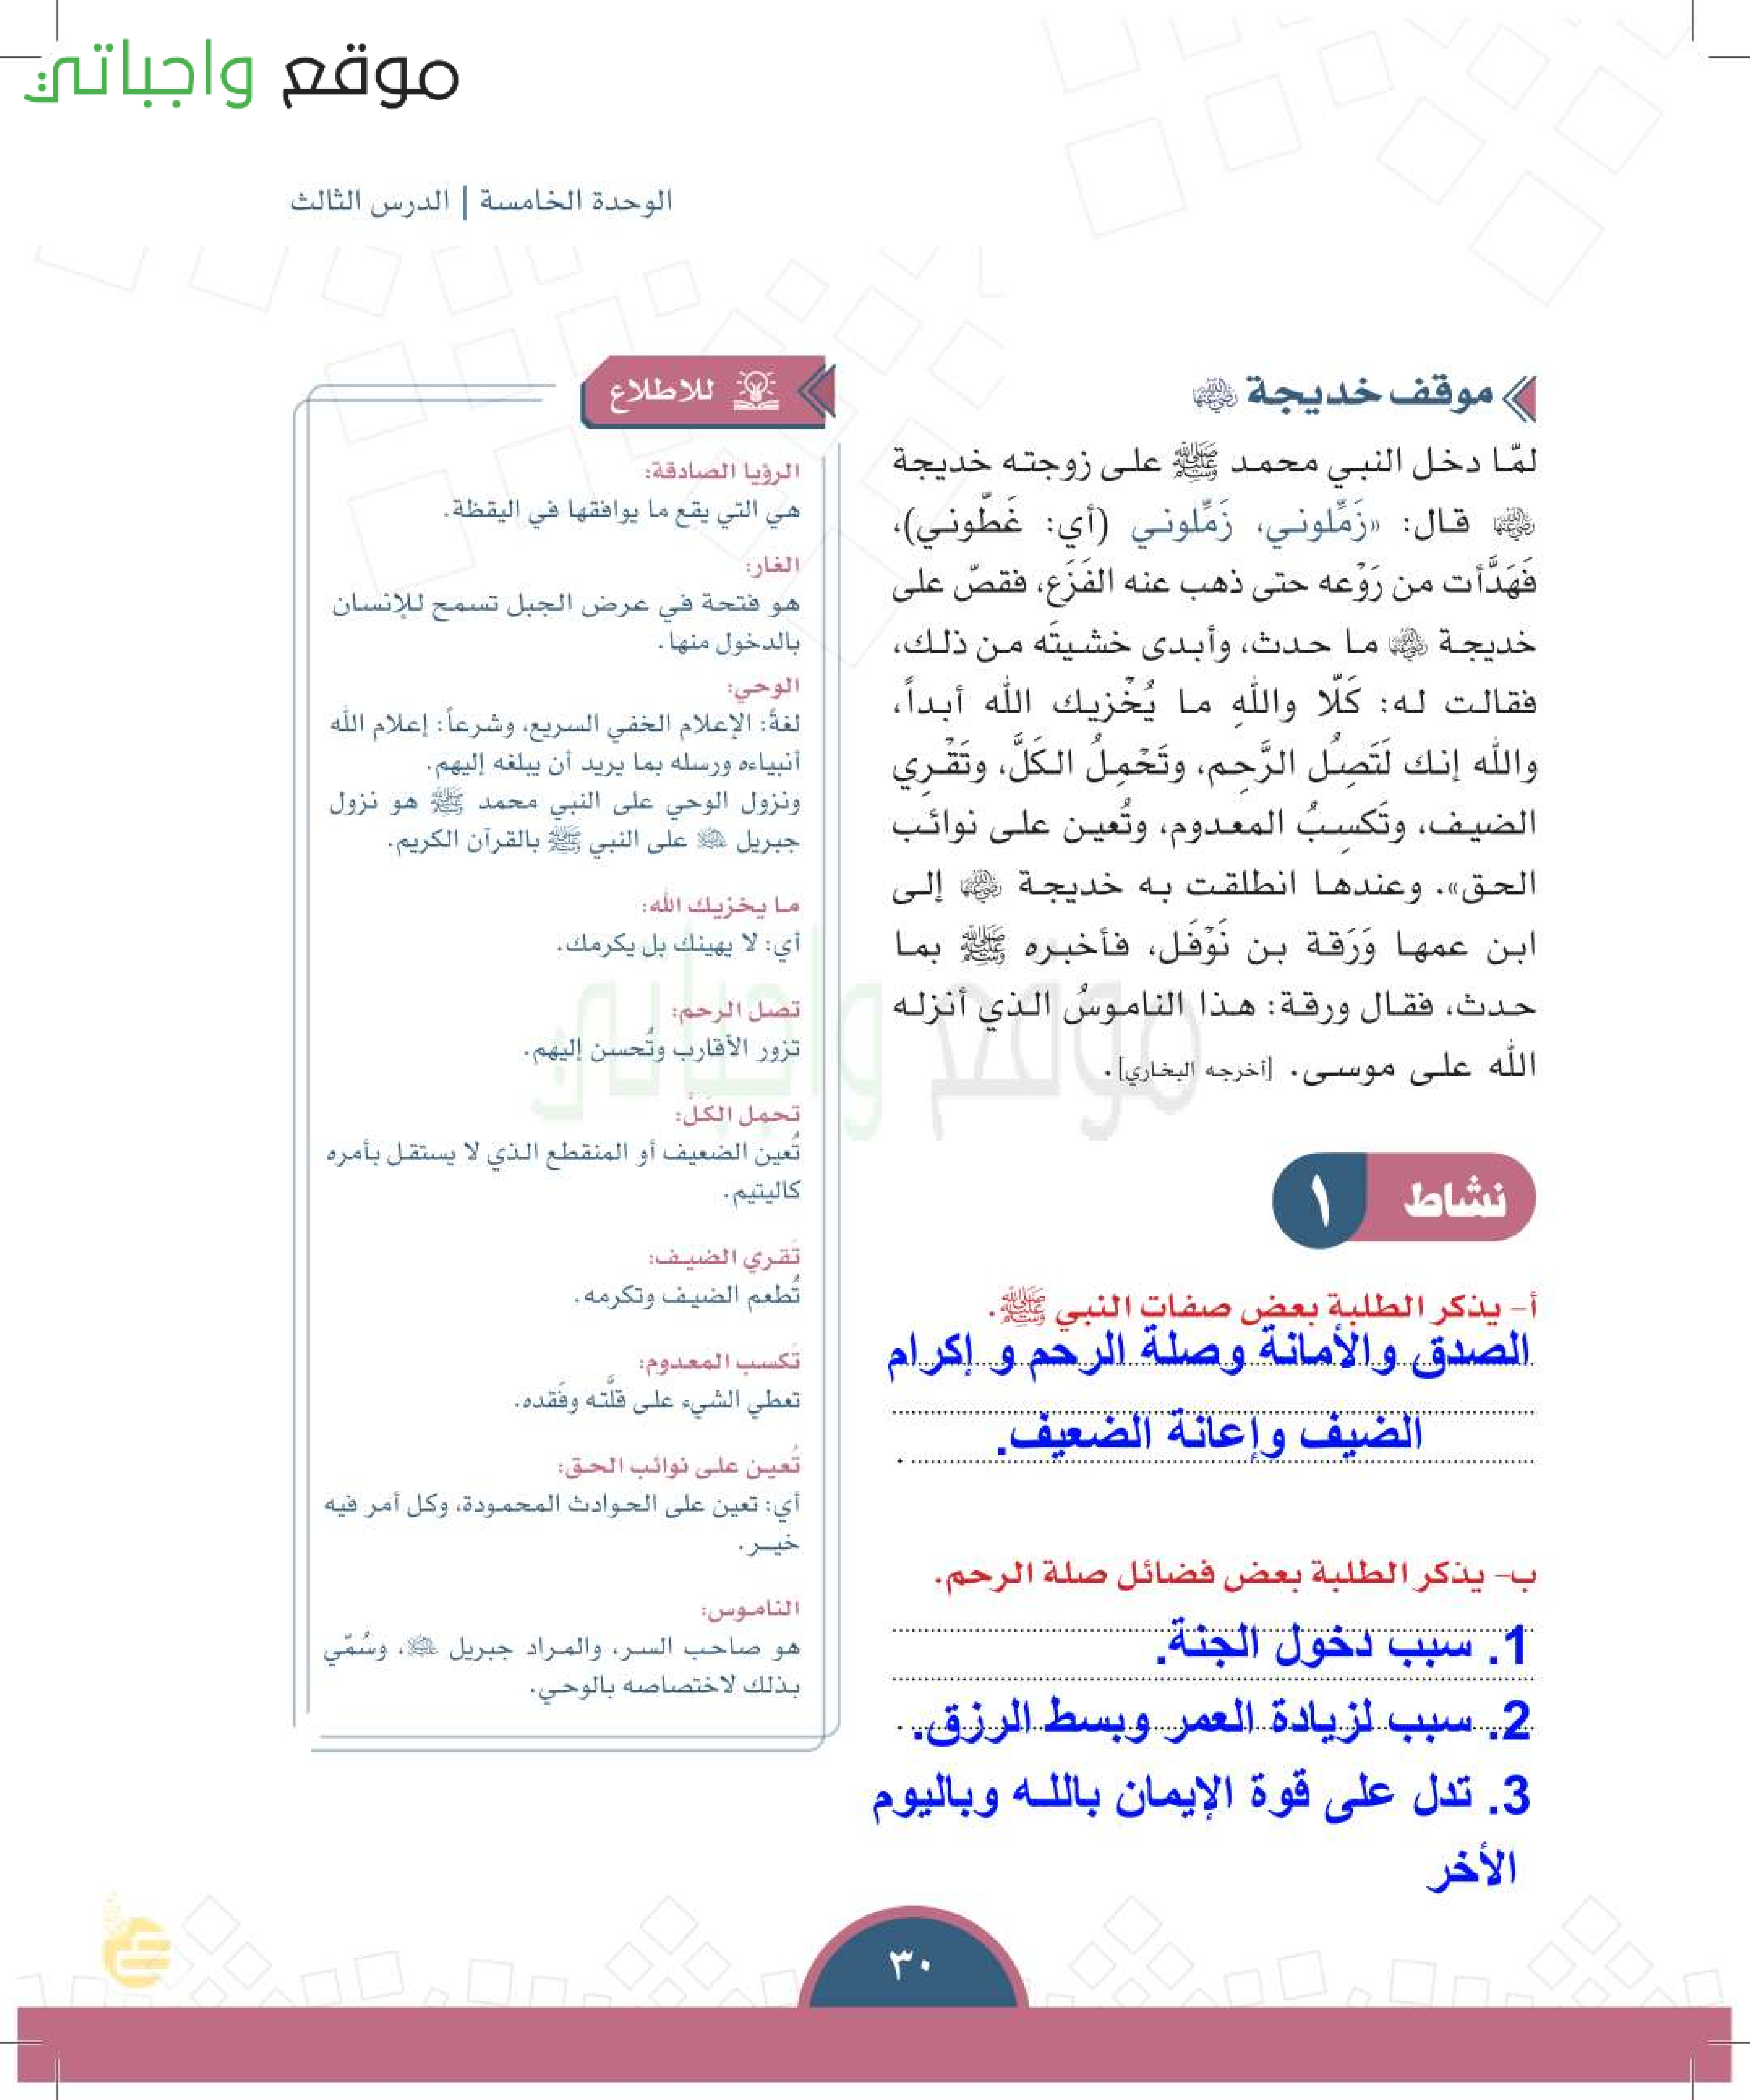 موقع واجباتي
الوحدة الخامسة | الدرس الثالث
موقف خديجة رضي الله عنها
لمّا دخل النبي محمد ﷺ على زوجته خديجة
رضي الله عنها قال: «زَمِّلوني، زَمِّلوني (أي: غَطّوني)،
فَهَدَّأت من رَوْعه حتى ذهب عنه الفَزَع، فقصّ على
خديجة رضي الله عنها ما حدث، وأبدى خشيتَه من ذلك،
فقالت له: كَلّا واللهِ ما يُخْزيك الله أبداً،
والله إنك لَتَصِلُ الرَّحِم، وتَحْمِلُ الكَلَّ، وتَقْرِي
الضيف، وتَكسِبُ المعدوم، وتُعين على نوائب
الحق». وعندها انطلقت به خديجة رضي الله عنها إلى
ابن عمها وَرَقة بن نَوْفَل، فأخبره ﷺ بما
حدث، فقال ورقة: هذا الناموسُ الذي أنزله
الله على موسى. [أخرجه البخاري].
نشاط ١
أ- يذكر الطلبة بعض صفات النبي ﷺ.
الصدق والأمانة وصلة الرحم و إكرام
الضيف وإعانة الضعيف.
ب- يذكر الطلبة بعض فضائل صلة الرحم.
1. سبب دخول الجنة.
2. سبب لزيادة العمر وبسط الرزق.
3. تدل على قوة الإيمان بالله وباليوم
الأخر
للاطلاع
الرؤيا الصادقة:
هي التي يقع ما يوافقها في اليقظة.
الغار:
هو فتحة في عرض الجبل تسمح للإنسان
بالدخول منها.
الوحي:
لغةً: الإعلام الخفي السريع، وشرعاً: إعلام الله
أنبياءه ورسله بما يريد أن يبلغه إليهم.
ونزول الوحي على النبي محمد ﷺ هو نزول
جبريل عليه السلام على النبي ﷺ بالقرآن الكريم.
ما يخزيك الله:
أي: لا يهينك بل يكرمك.
تصل الرحم:
تزور الأقارب وتُحسن إليهم.
تحمل الكَلَّ:
تُعين الضعيف أو المنقطع الذي لا يستقل بأمره
كاليتيم.
تَقري الضيف:
تُطعم الضيف وتكرمه.
تَكسب المعدوم:
تعطي الشيء على قلَّته وفَقده.
تُعين على نوائب الحق:
أي: تعين على الحوادث المحمودة، وكل أمر فيه
خير.
الناموس:
هو صاحب السر، والمراد جبريل عليه السلام، وسُمّي
بذلك لاختصاصه بالوحي.
موقع واجباتي
٣٠